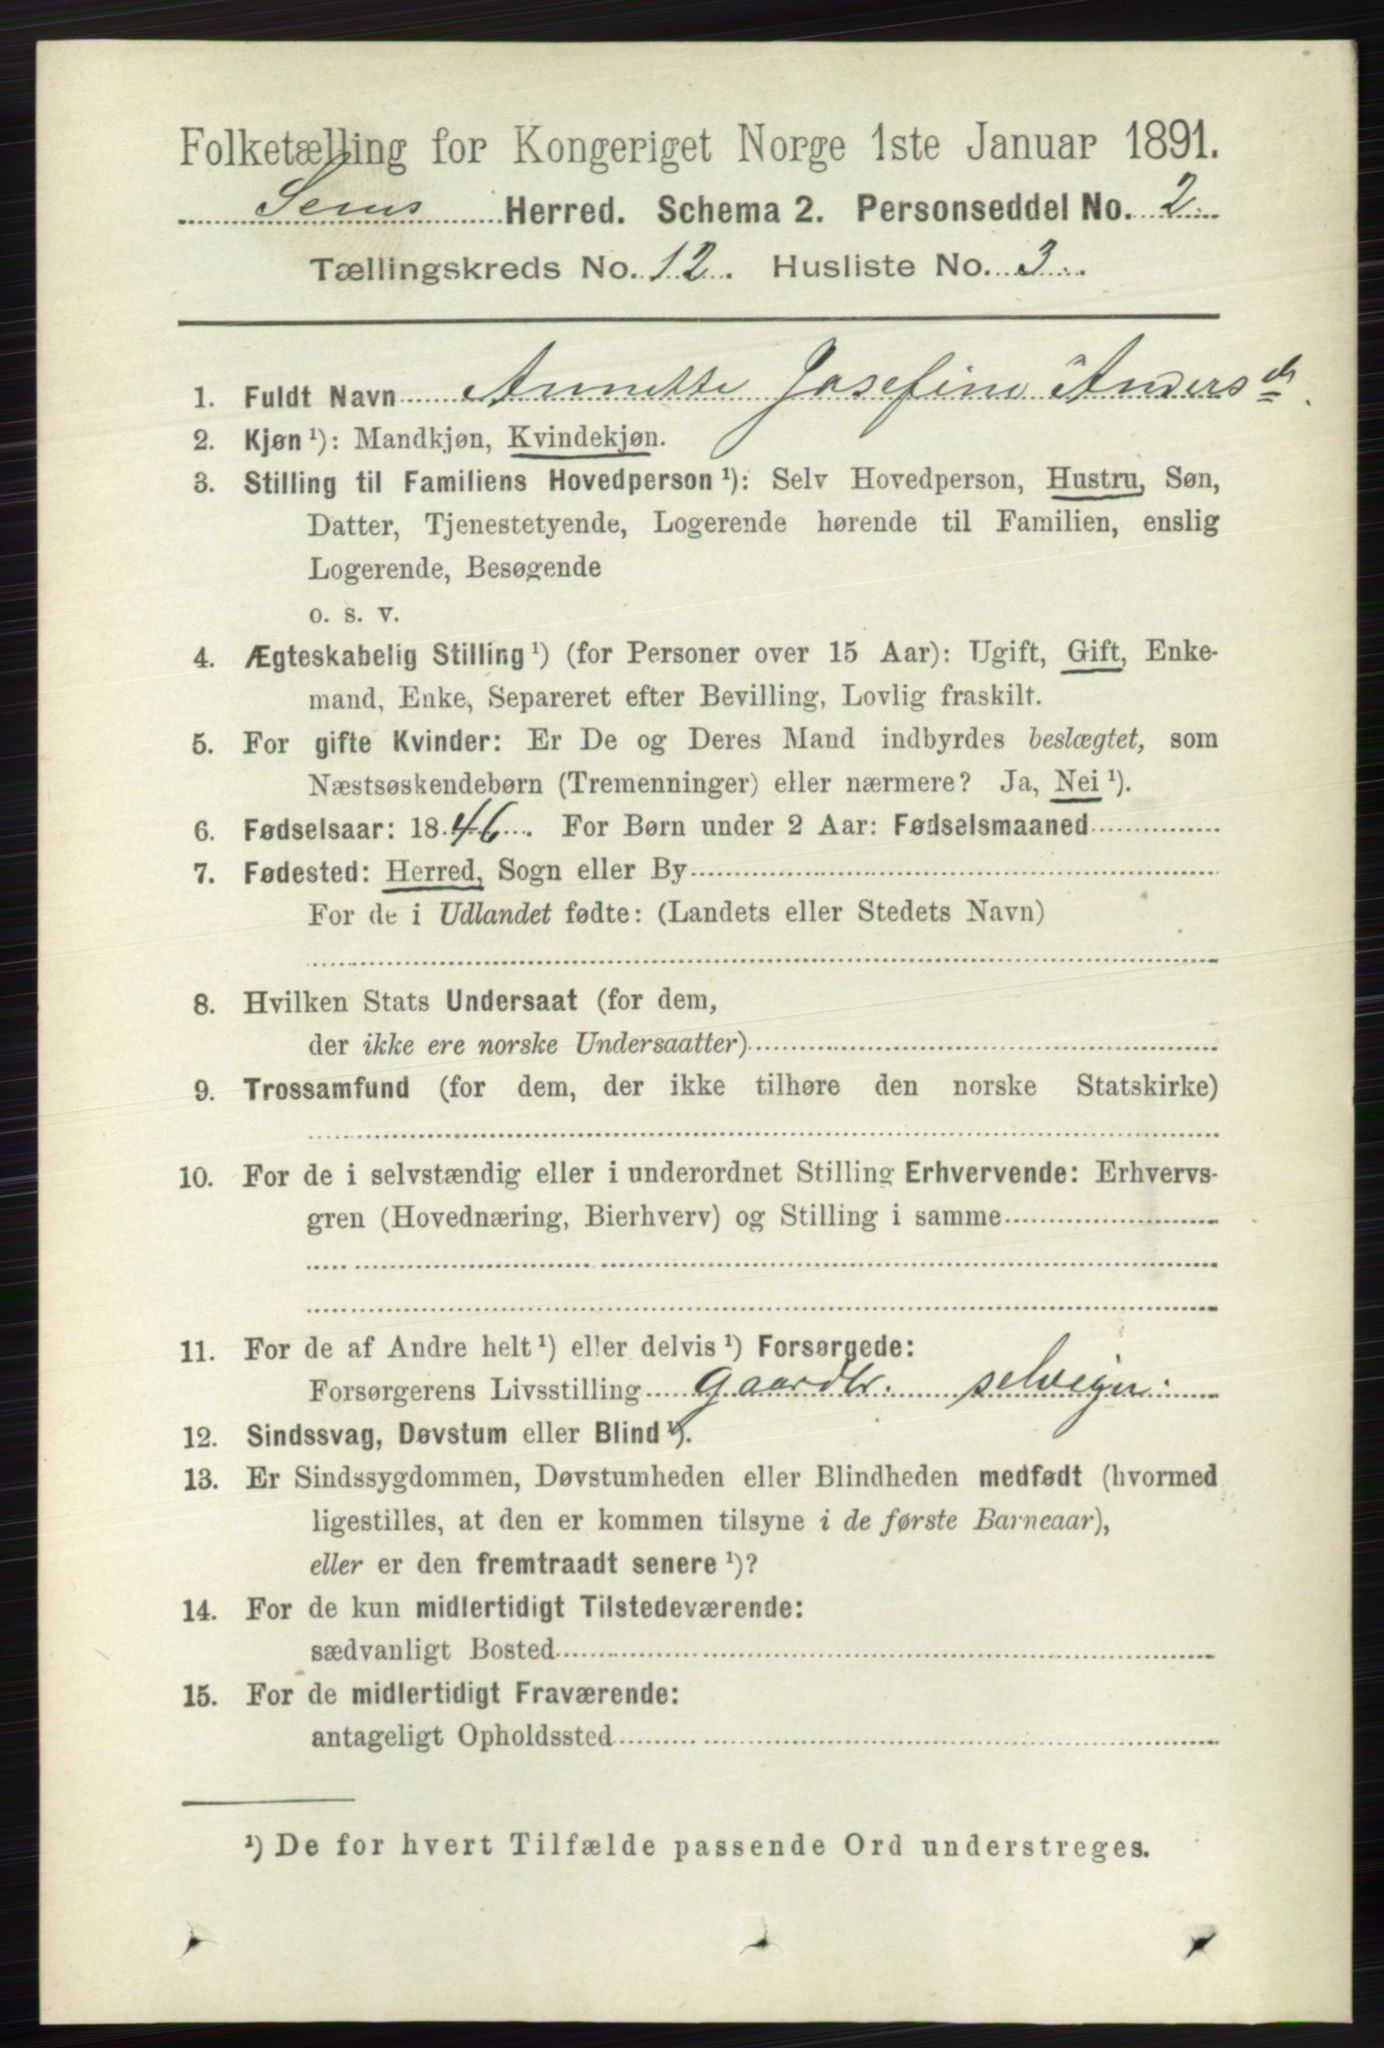 Folketælling for Kongeriget Norge 1ste Januar 1891.
Sems Herred. Schema 2. Personseddel No. 2
Tællingskreds No. 12. Husliste No. 3.
1. Fuldt Navn Annette Josefine Andersdr.
2. Kjøn ¹): Mandkjøn, Kvindekjøn.
3. Stilling til Familiens Hovedperson ¹): Selv Hovedperson, Hustru, Søn,
Datter, Tjenestetyende, Logerende hørende til Familien, enslig
Logerende, Besøgende
o. s. v.
4. Ægteskabelig Stilling ¹) (for Personer over 15 Aar): Ugift, Gift, Enke-
mand, Enke, Separeret efter Bevilling, Lovlig fraskilt.
5. For gifte Kvinder: Er De og Deres Mand indbyrdes beslægtet, som
Næstsøskendebørn (Tremenninger) eller nærmere? Ja, Nei ¹).
6. Fødselsaar: 1846. For Børn under 2 Aar: Fødselsmaaned
7. Fødested: Herred, Sogn eller By
For de i Udlandet fødte: (Landets eller Stedets Navn)
8. Hvilken Stats Undersaat (for dem,
der ikke ere norske Undersaatter)
9. Trossamfund (for dem, der ikke tilhøre den norske Statskirke)
10. For de i selvstændig eller i underordnet Stilling Erhvervende: Erhvervs-
gren (Hovednæring, Bierhverv) og Stilling i samme
11. For de af Andre helt ¹) eller delvis ¹) Forsørgede:
Forsørgerens Livsstilling Gaardbr. selveier.
12. Sindssvag, Døvstum eller Blind ¹).
13. Er Sindssygdommen, Døvstumheden eller Blindheden medfødt (hvormed
ligestilles, at den er kommen tilsyne i de første Barneaar),
eller er den fremtraadt senere ¹)?
14. For de kun midlertidigt Tilstedeværende:
sædvanligt Bosted
15. For de midlertidigt Fraværende:
antageligt Opholdssted
¹) De for hvert Tilfælde passende Ord understreges.